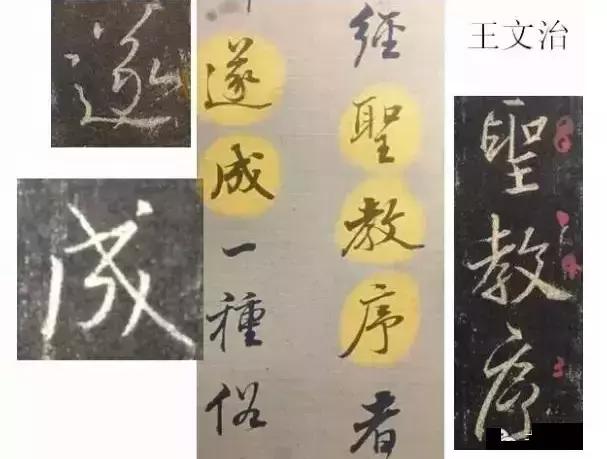 王文治
經聖教序者
遂成一種俗
遂
成
聖教序